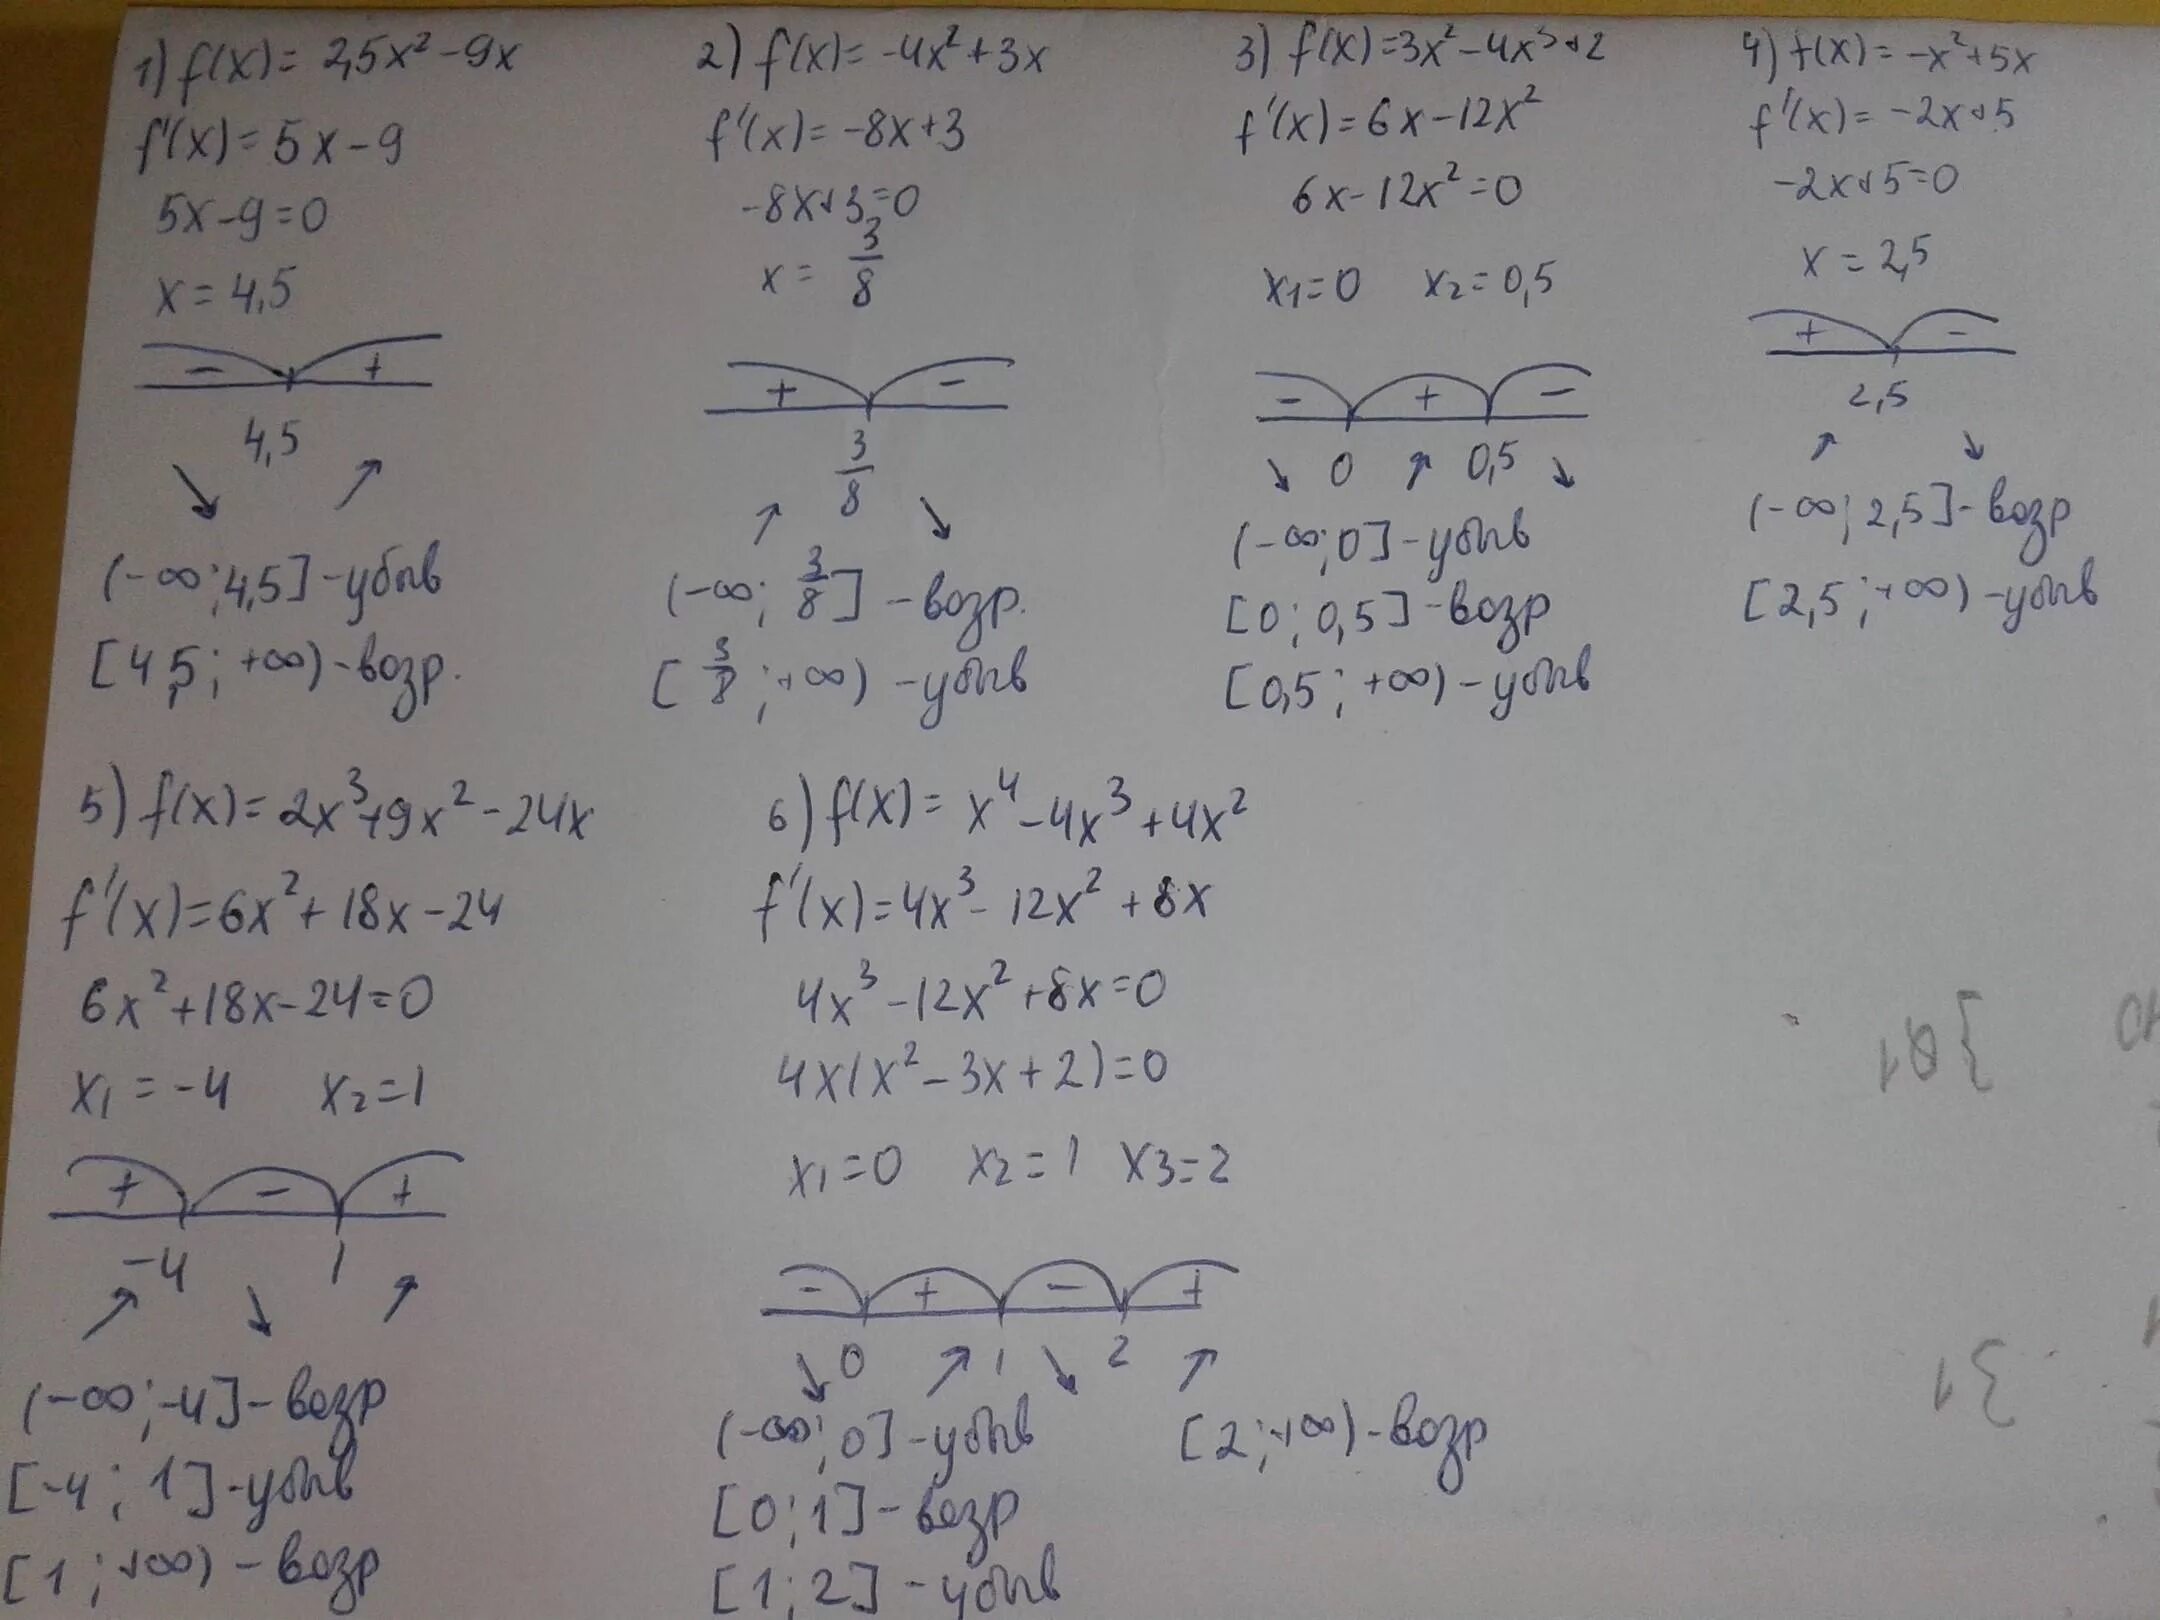 1) f(x) = 2,5x² - 9x
f'(x) = 5x - 9
5x - 9 = 0
x = 4,5
- +
4,5
↘ ↗
(-∞; 4,5] - убыв
[4,5; +∞) - возр.
2) f(x) = -4x² + 3x
f'(x) = -8x + 3
-8x + 3 = 0
x = 3/8
+ -
3/8
↗ ↘
(-∞; 3/8] - возр.
[3/8; +∞) - убыв
3) f(x) = 3x² - 4x³ + 2
f'(x) = 6x - 12x²
6x - 12x² = 0
x1 = 0 x2 = 0,5
- + -
↘ 0 ↗ 0,5 ↘
(-∞; 0] - убыв
[0; 0,5] - возр
[0,5; +∞) - убыв
4) f(x) = -x² + 5x
f'(x) = -2x + 5
-2x + 5 = 0
x = 2,5
+ -
2,5
↗ ↘
(-∞; 2,5] - возр
[2,5; +∞) - убыв
5) f(x) = 2x³ + 9x² - 24x
f'(x) = 6x² + 18x - 24
6x² + 18x - 24 = 0
x1 = -4 x2 = 1
+ - +
-4 1
↗ ↘ ↗
(-∞; -4] - возр
[-4; 1] - убыв
[1; +∞) - возр
6) f(x) = x⁴ - 4x³ + 4x²
f'(x) = 4x³ - 12x² + 8x
4x³ - 12x² + 8x = 0
4x(x² - 3x + 2) = 0
x1 = 0 x2 = 1 x3 = 2
- + - +
↘ 0 ↗ 1 ↘ 2 ↗
(-∞; 0] - убыв
[0; 1] - возр
[1; 2] - убыв
[2; +∞) - возр